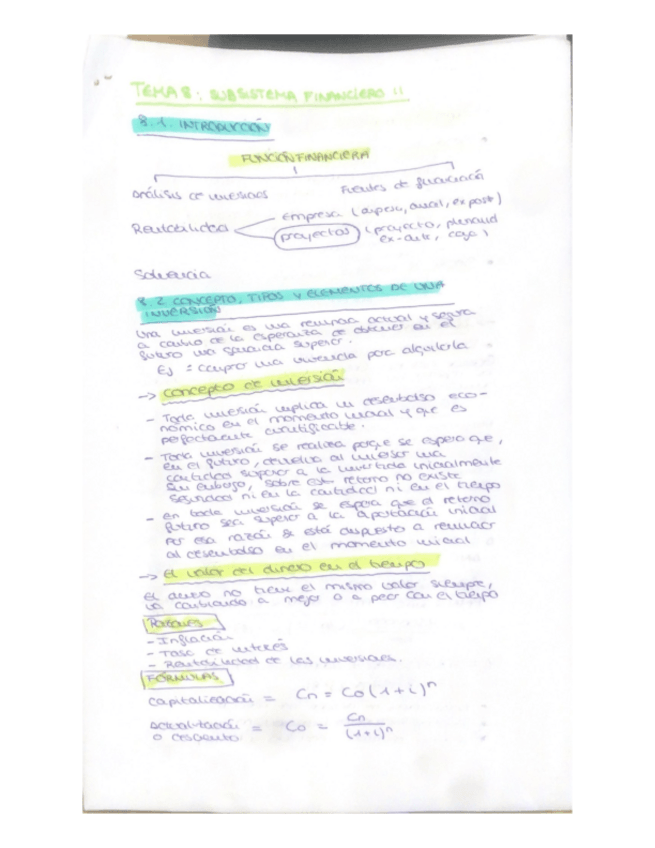 TEMA 8: SUBSISTEMA FINANCIERO II
8.1. INTRODUCCIÓN
FUNCIÓN FINANCIERA
análisis de inversiones
Fuentes de financiación
Rentabilidad
empresa (dupont, anual, ex post)
proyectos (proyecto, plurianual
ex-ante, caja)
Solvencia
8.2 CONCEPTO, TIPOS Y ELEMENTOS DE UNA
INVERSIÓN
Una inversión es una renuncia actual y segura
a cambio de la esperanza de obtener en el
futuro una ganancia superior.
Ej = comprar una vivienda para alquilarla
-> concepto de inversión
- Toda inversión implica un desembolso eco-
nómico en el momento inicial y que es
perfectamente cuantificable.
- Toda inversión se realiza porque se espera que,
en el futuro, devuelva al inversor una
cantidad superior a la invertida inicialmente
Sin embargo, sobre este retorno no existe
seguridad ni en la cantidad ni en el tiempo
- en toda inversión se espera que el retorno
futuro sea superior a la aportación inicial
Por esa razón se está dispuesto a renunciar
al desembolso en el momento inicial
-> el valor del dinero en el tiempo
el dinero no tiene el mismo valor siempre,
va cambiando a mejor o a peor con el tiempo
Razones
- Inflación
- Tasa de interés
- Rentabilidad de las inversiones.
FÓRMULAS
capitalización = Cn = Co (1+i)^n
actualización = Co = Cn / (1+i)^n
o descuento